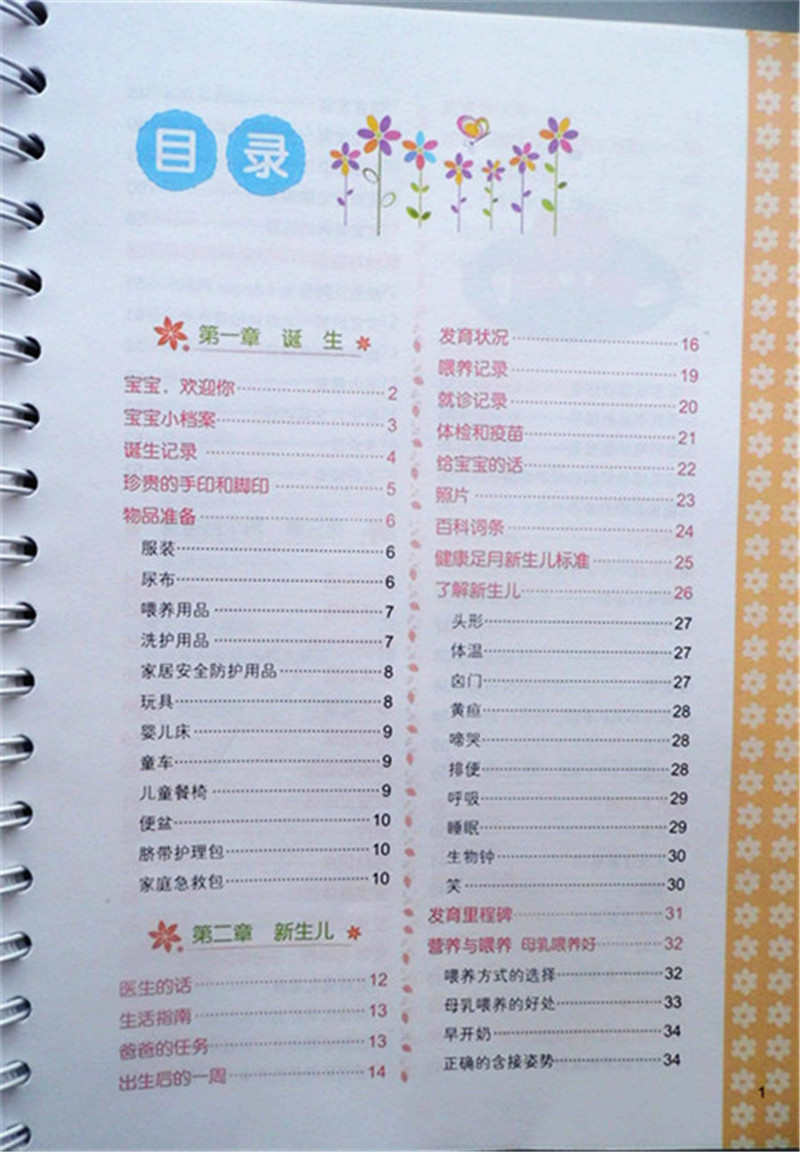 目录
第一章 诞 生
宝宝，欢迎你 2
宝宝小档案 3
诞生记录 4
珍贵的手印和脚印 5
物品准备 6
服装 6
尿布 6
喂养用品 7
洗护用品 7
家居安全防护用品 8
玩具 8
婴儿床 9
童车 9
儿童餐椅 9
便盆 10
脐带护理包 10
家庭急救包 10
第二章 新生儿
医生的话 12
生活指南 13
爸爸的任务 13
出生后的一周 14
发育状况 16
喂养记录 19
就诊记录 20
体检和疫苗 21
给宝宝的话 22
照片 23
百科词条 24
健康足月新生儿标准 25
了解新生儿 26
头形 27
体温 27
囟门 27
黄疸 28
啼哭 28
排便 28
呼吸 29
睡眠 29
生物钟 30
笑 30
发育里程碑 31
营养与喂养 母乳喂养好 32
喂养方式的选择 32
母乳喂养的好处 33
早开奶 34
正确的含接姿势 34
1